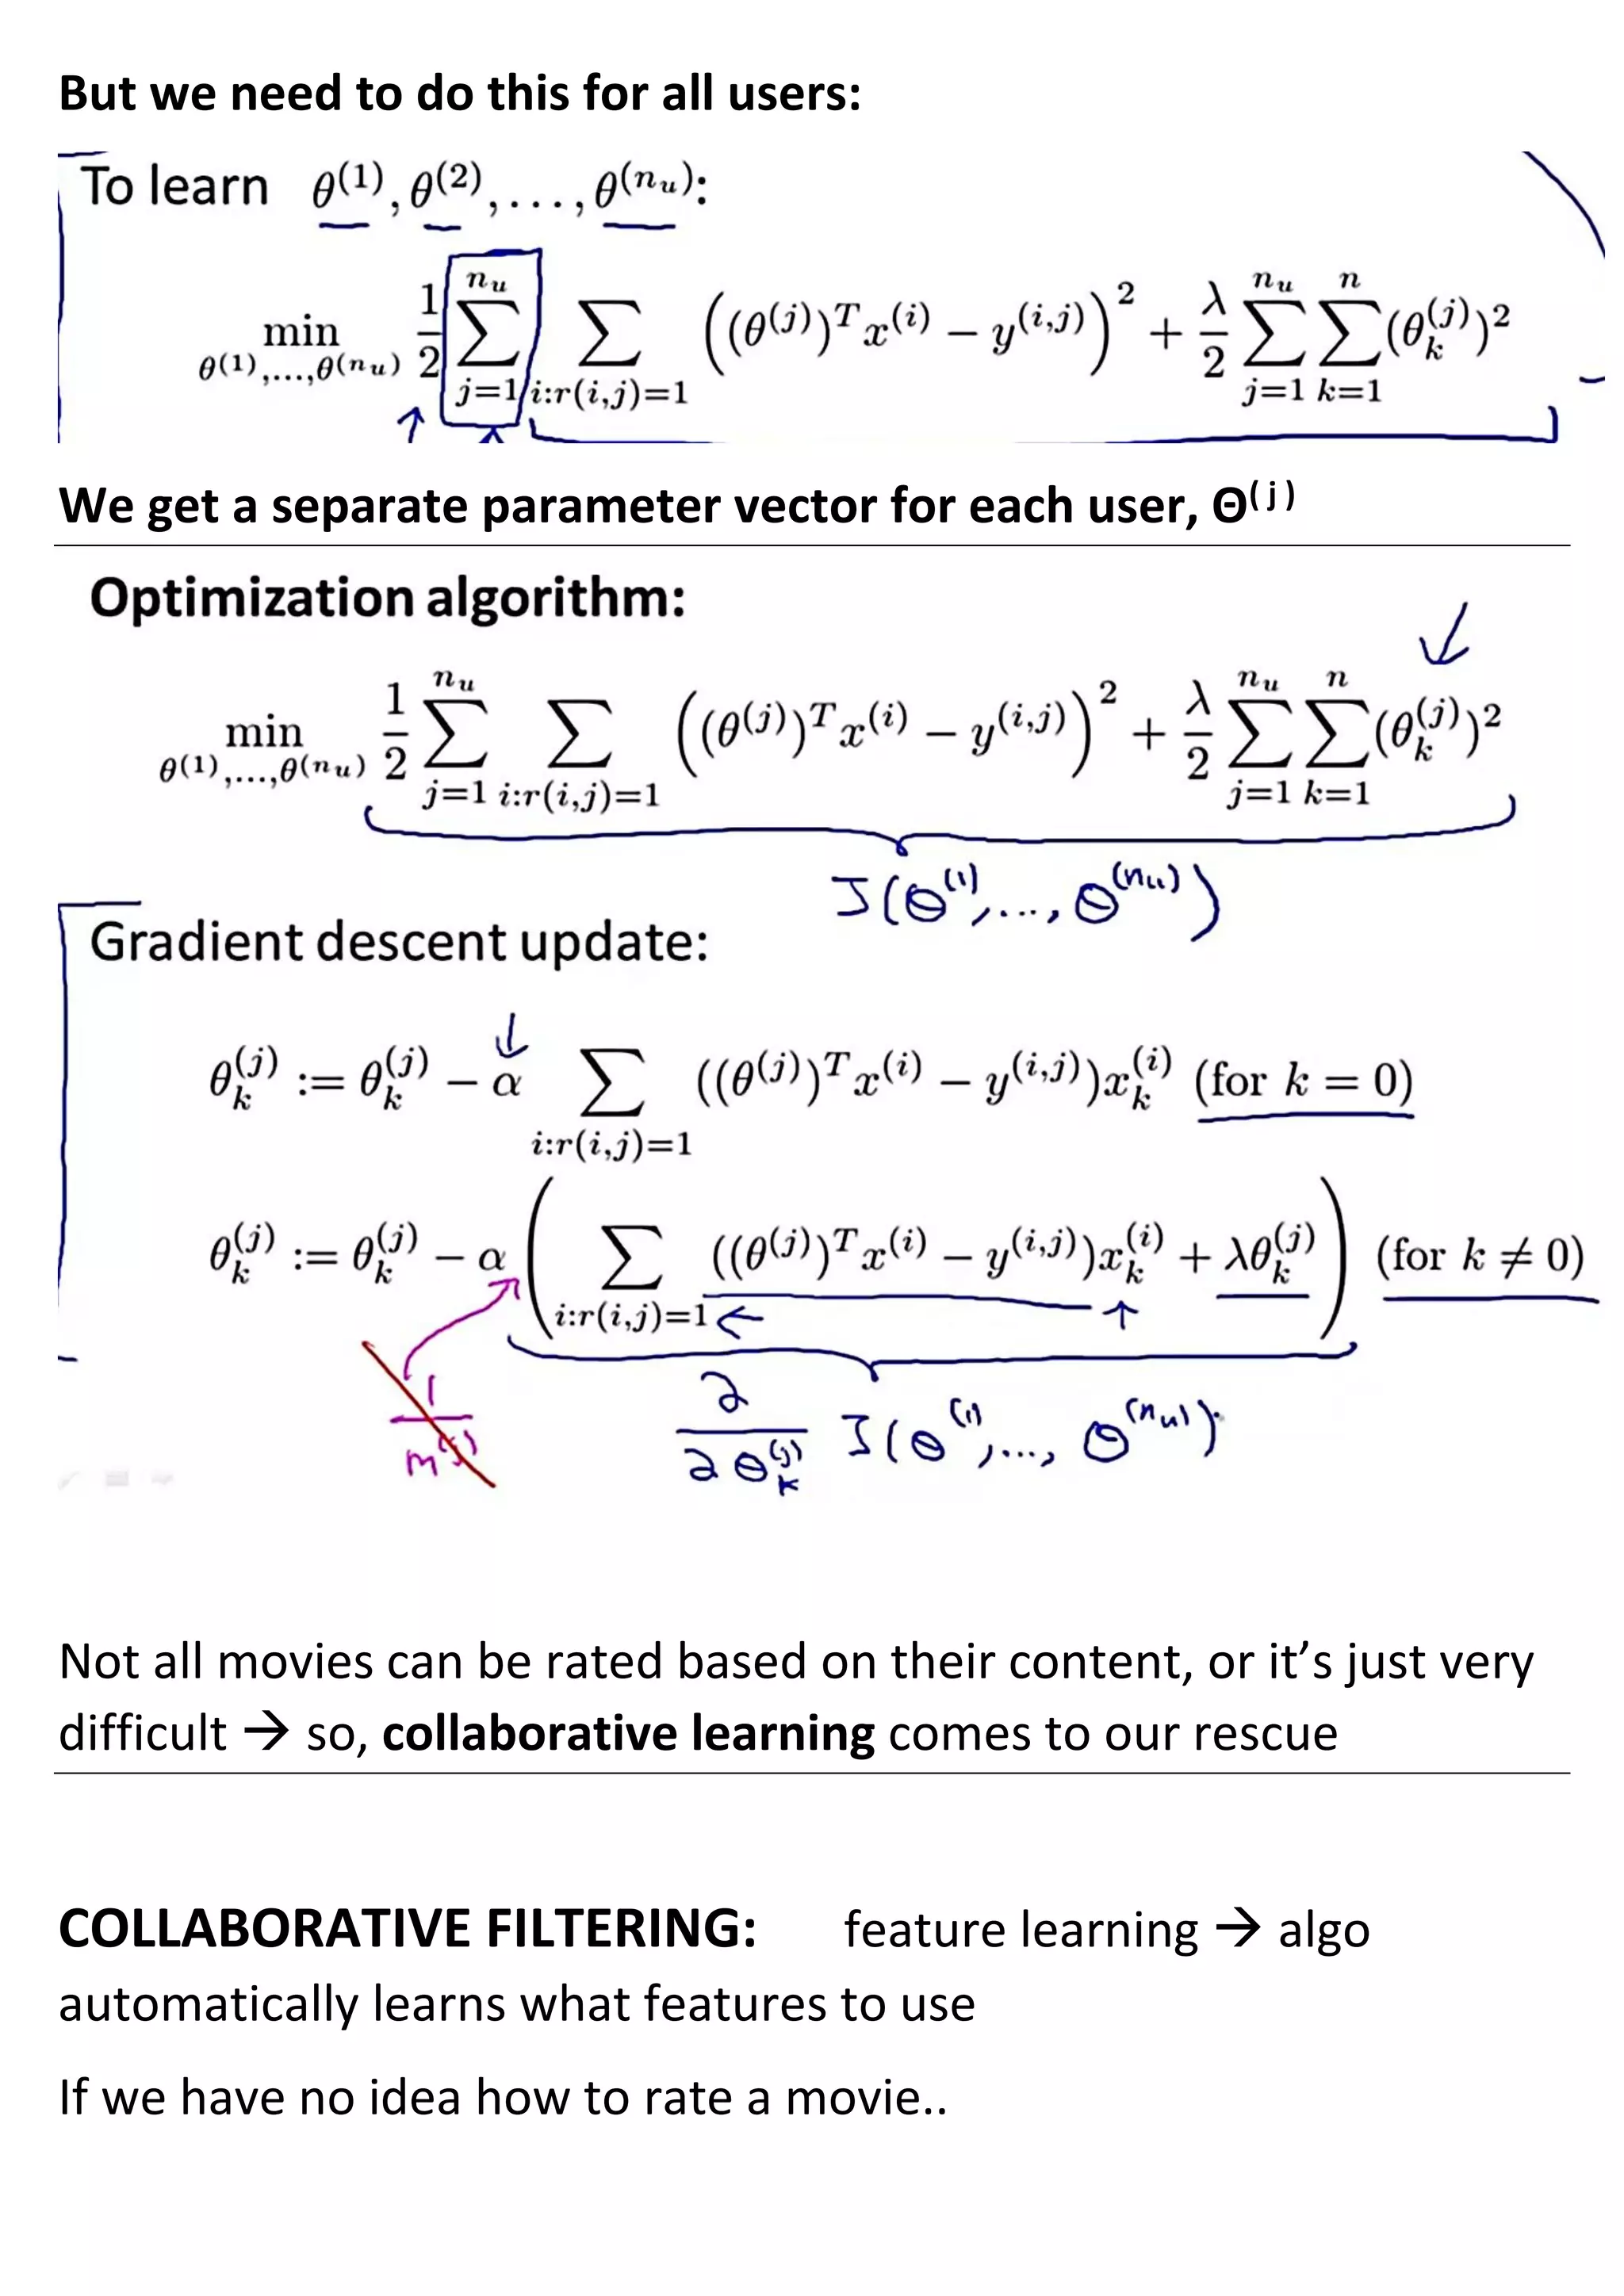 But we need to do this for all users:
To learn θ^(1), θ^(2), ..., θ^(n_u):
min_{θ^(1),...,θ^(n_u)} 1/2 ∑_{j=1}^{n_u} ∑_{i:r(i,j)=1} ((θ^(j))^T x^(i) − y^(i,j))^2 + λ/2 ∑_{j=1}^{n_u} ∑_{k=1}^{n} (θ_k^(j))^2
We get a separate parameter vector for each user, Θ^( j )
Optimization algorithm:
min_{θ^(1),...,θ^(n_u)} 1/2 ∑_{j=1}^{n_u} ∑_{i:r(i,j)=1} ((θ^(j))^T x^(i) − y^(i,j))^2 + λ/2 ∑_{j=1}^{n_u} ∑_{k=1}^{n} (θ_k^(j))^2
J(Θ^(1), ..., Θ^(n_u))
Gradient descent update:
θ_k^(j) := θ_k^(j) − α ∑_{i:r(i,j)=1} ((θ^(j))^T x^(i) − y^(i,j)) x_k^(i) (for k = 0)
θ_k^(j) := θ_k^(j) − α ( ∑_{i:r(i,j)=1} ((θ^(j))^T x^(i) − y^(i,j)) x_k^(i) + λθ_k^(j) ) (for k ≠ 0)
1/m^(j) ∂/∂Θ_k^(j) J(Θ^(1), ..., Θ^(n_u))
Not all movies can be rated based on their content, or it’s just very
difficult → so, collaborative learning comes to our rescue
COLLABORATIVE FILTERING: feature learning → algo
automatically learns what features to use
If we have no idea how to rate a movie..